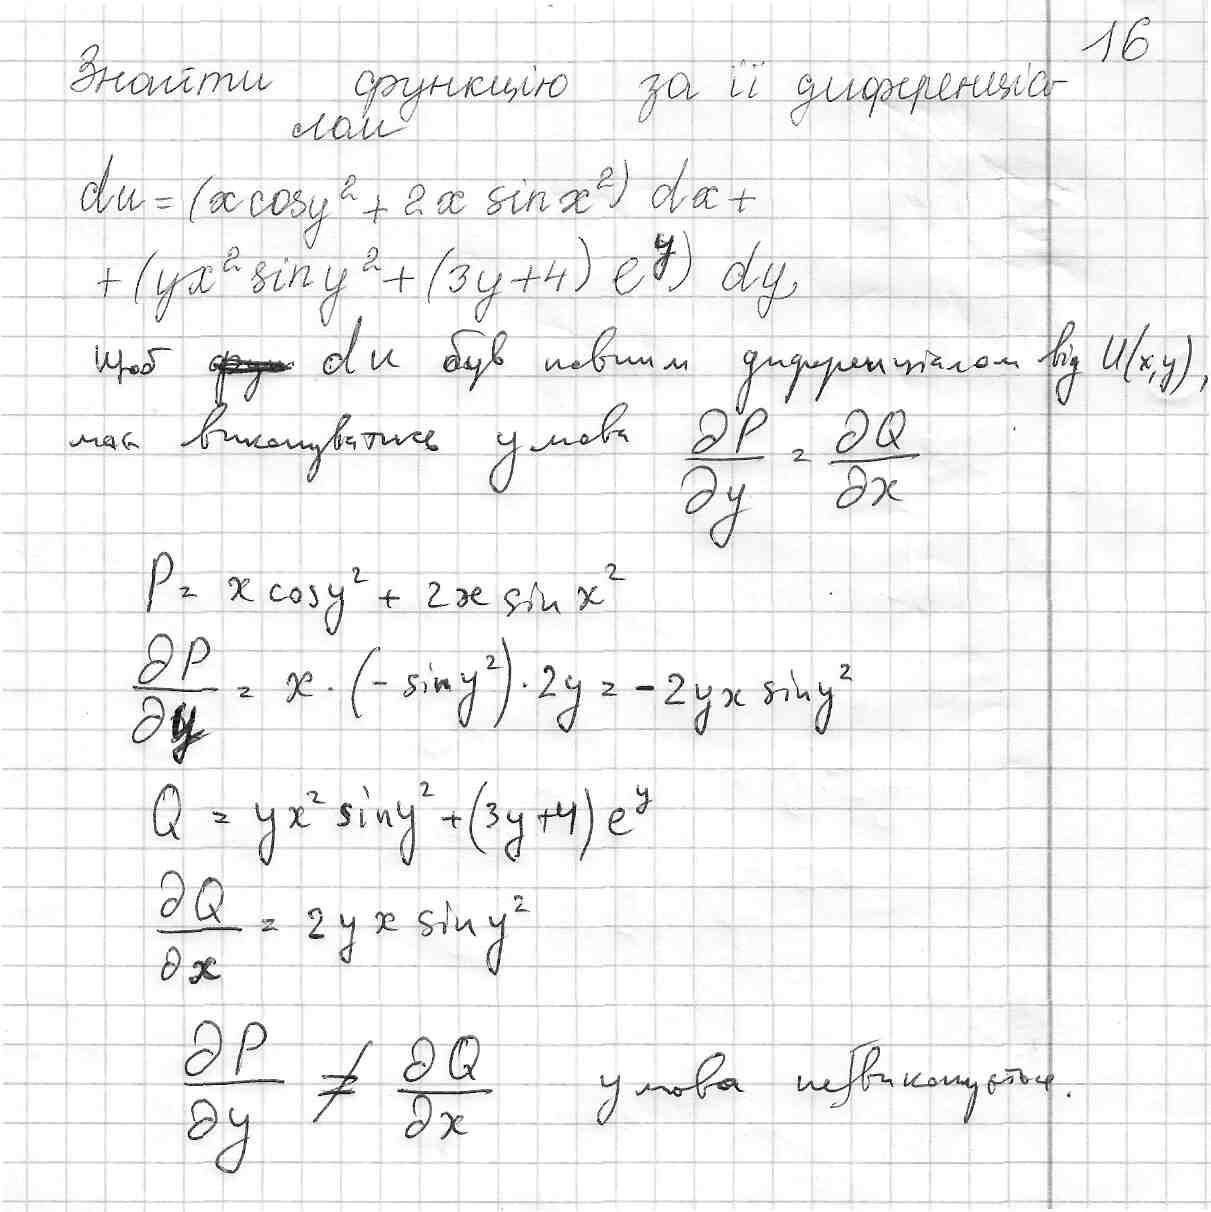 16
Знайти функцію за її диференціа-
лом
du = (x cosy² + 2x sin x²) dx +
+ (yx² siny² + (3y+4) e^y) dy,
Щоб du був повним диференціалом від U(x,y),
має виконуватись умова ∂P/∂y = ∂Q/∂x
P = x cosy² + 2x sin x²
∂P/∂y = x · (- siny²) · 2y = -2yx siny²
Q = yx² siny² + (3y+4) e^y
∂Q/∂x = 2yx siny²
∂P/∂y ≠ ∂Q/∂x умова не виконується.